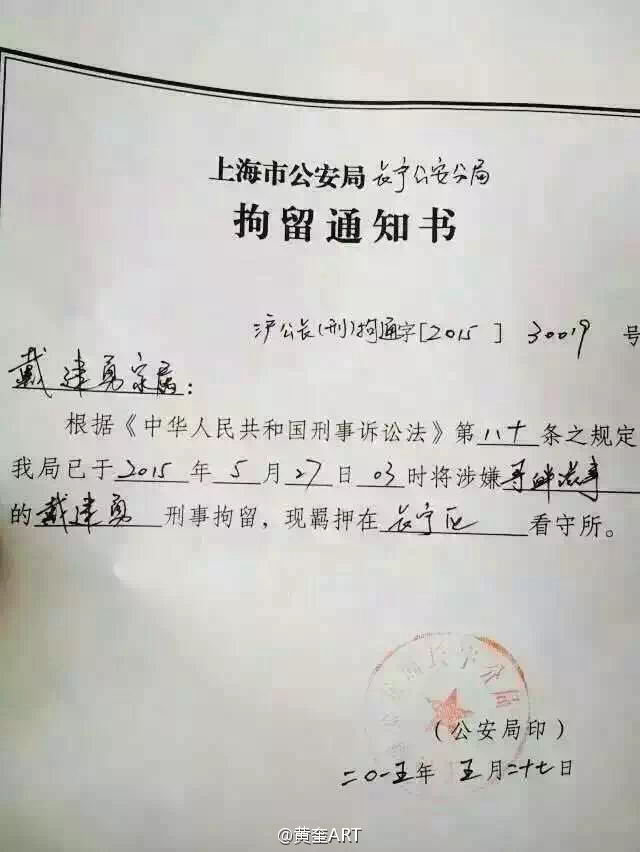 上海市公安局长宁公安分局
拘留通知书
沪公长(刑)拘通字[2015]30019号
戴建勇家属：
根据《中华人民共和国刑事诉讼法》第八十条之规定
我局已于2015年5月27日03时将涉嫌寻衅滋事
的戴建勇刑事拘留，现羁押在长宁区看守所。
长宁分局
（公安局印）
二〇一五年五月二十七日
@黄奎ART